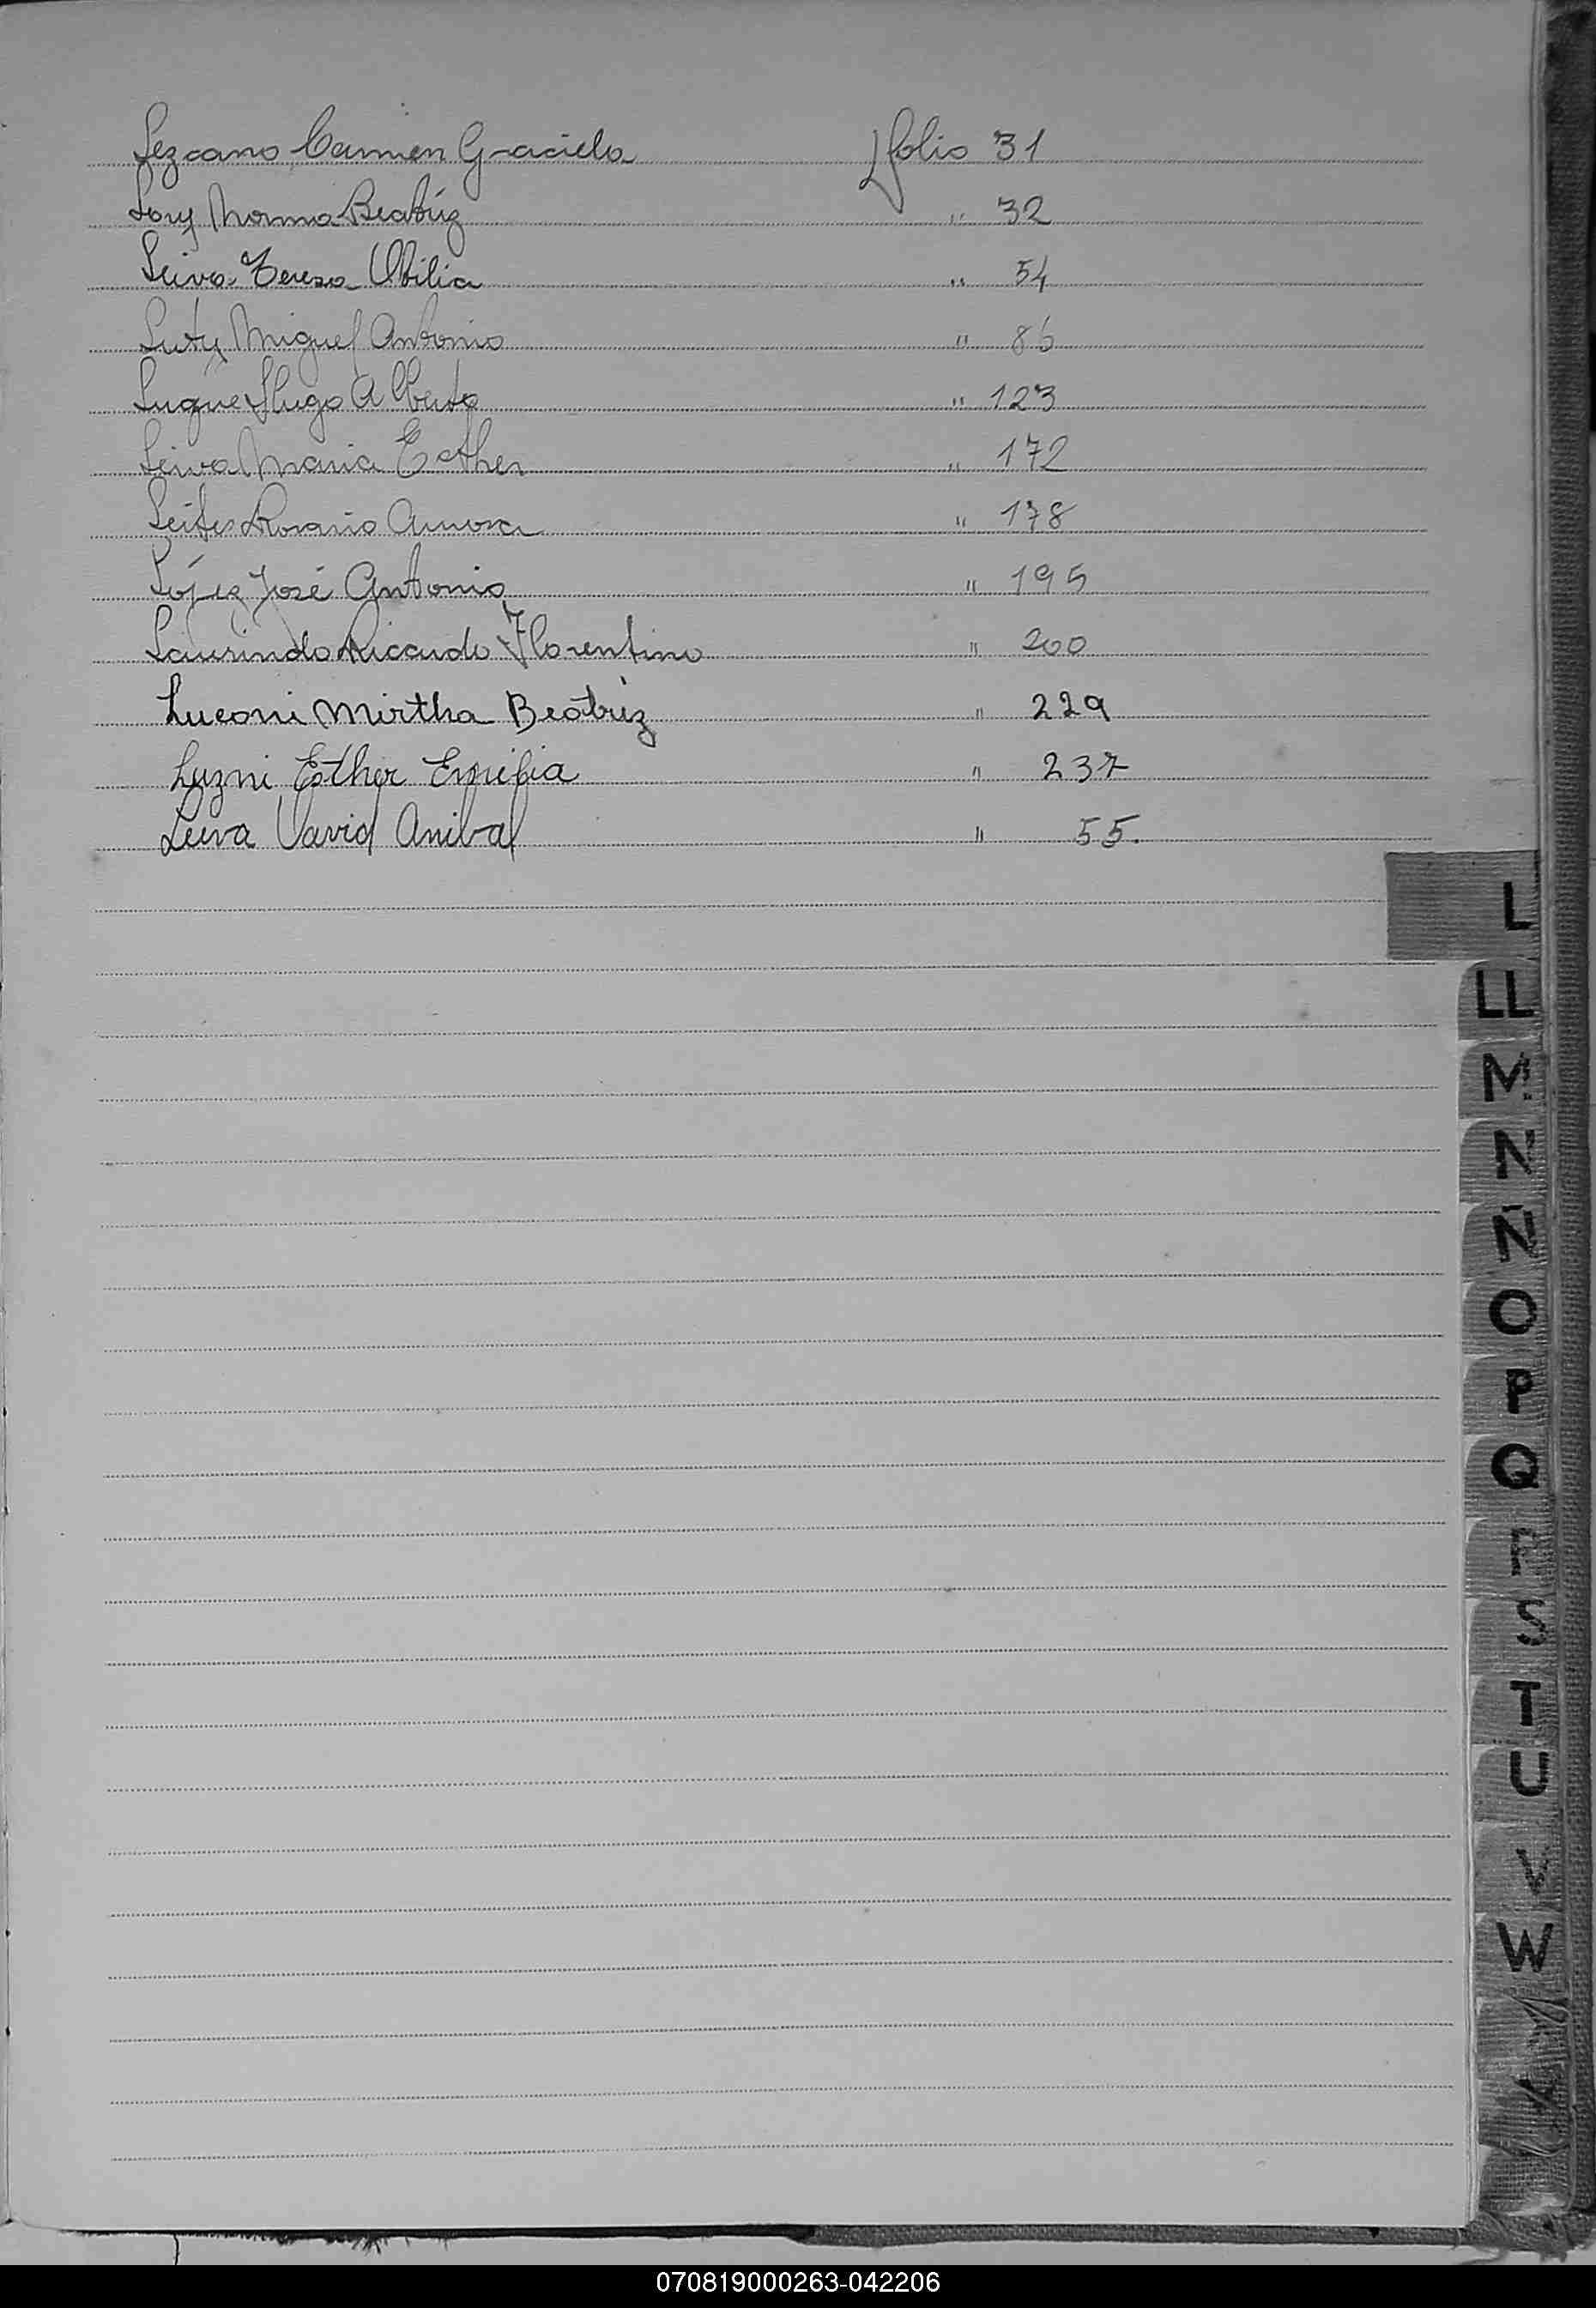 Lezcano Carmen Graciela folio 31
Lory Norma Beatriz " 32
Leiva Teresa Otilia " 54
Luty Miguel Antonio " 86
Luque Hugo Alberto " 123
Leiva Maria Esther " 172
Leites Rosario Aurora " 178
López José Antonio " 195
Laurindo Ricardo Florentino " 200
Luconi Mirtha Beatriz " 229
Luzni Esther Emilia " 237
Leiva David Anibal " 55.
L
LL
M
N
Ñ
O
P
Q
R
S
T
U
V
W
070819000263-042206